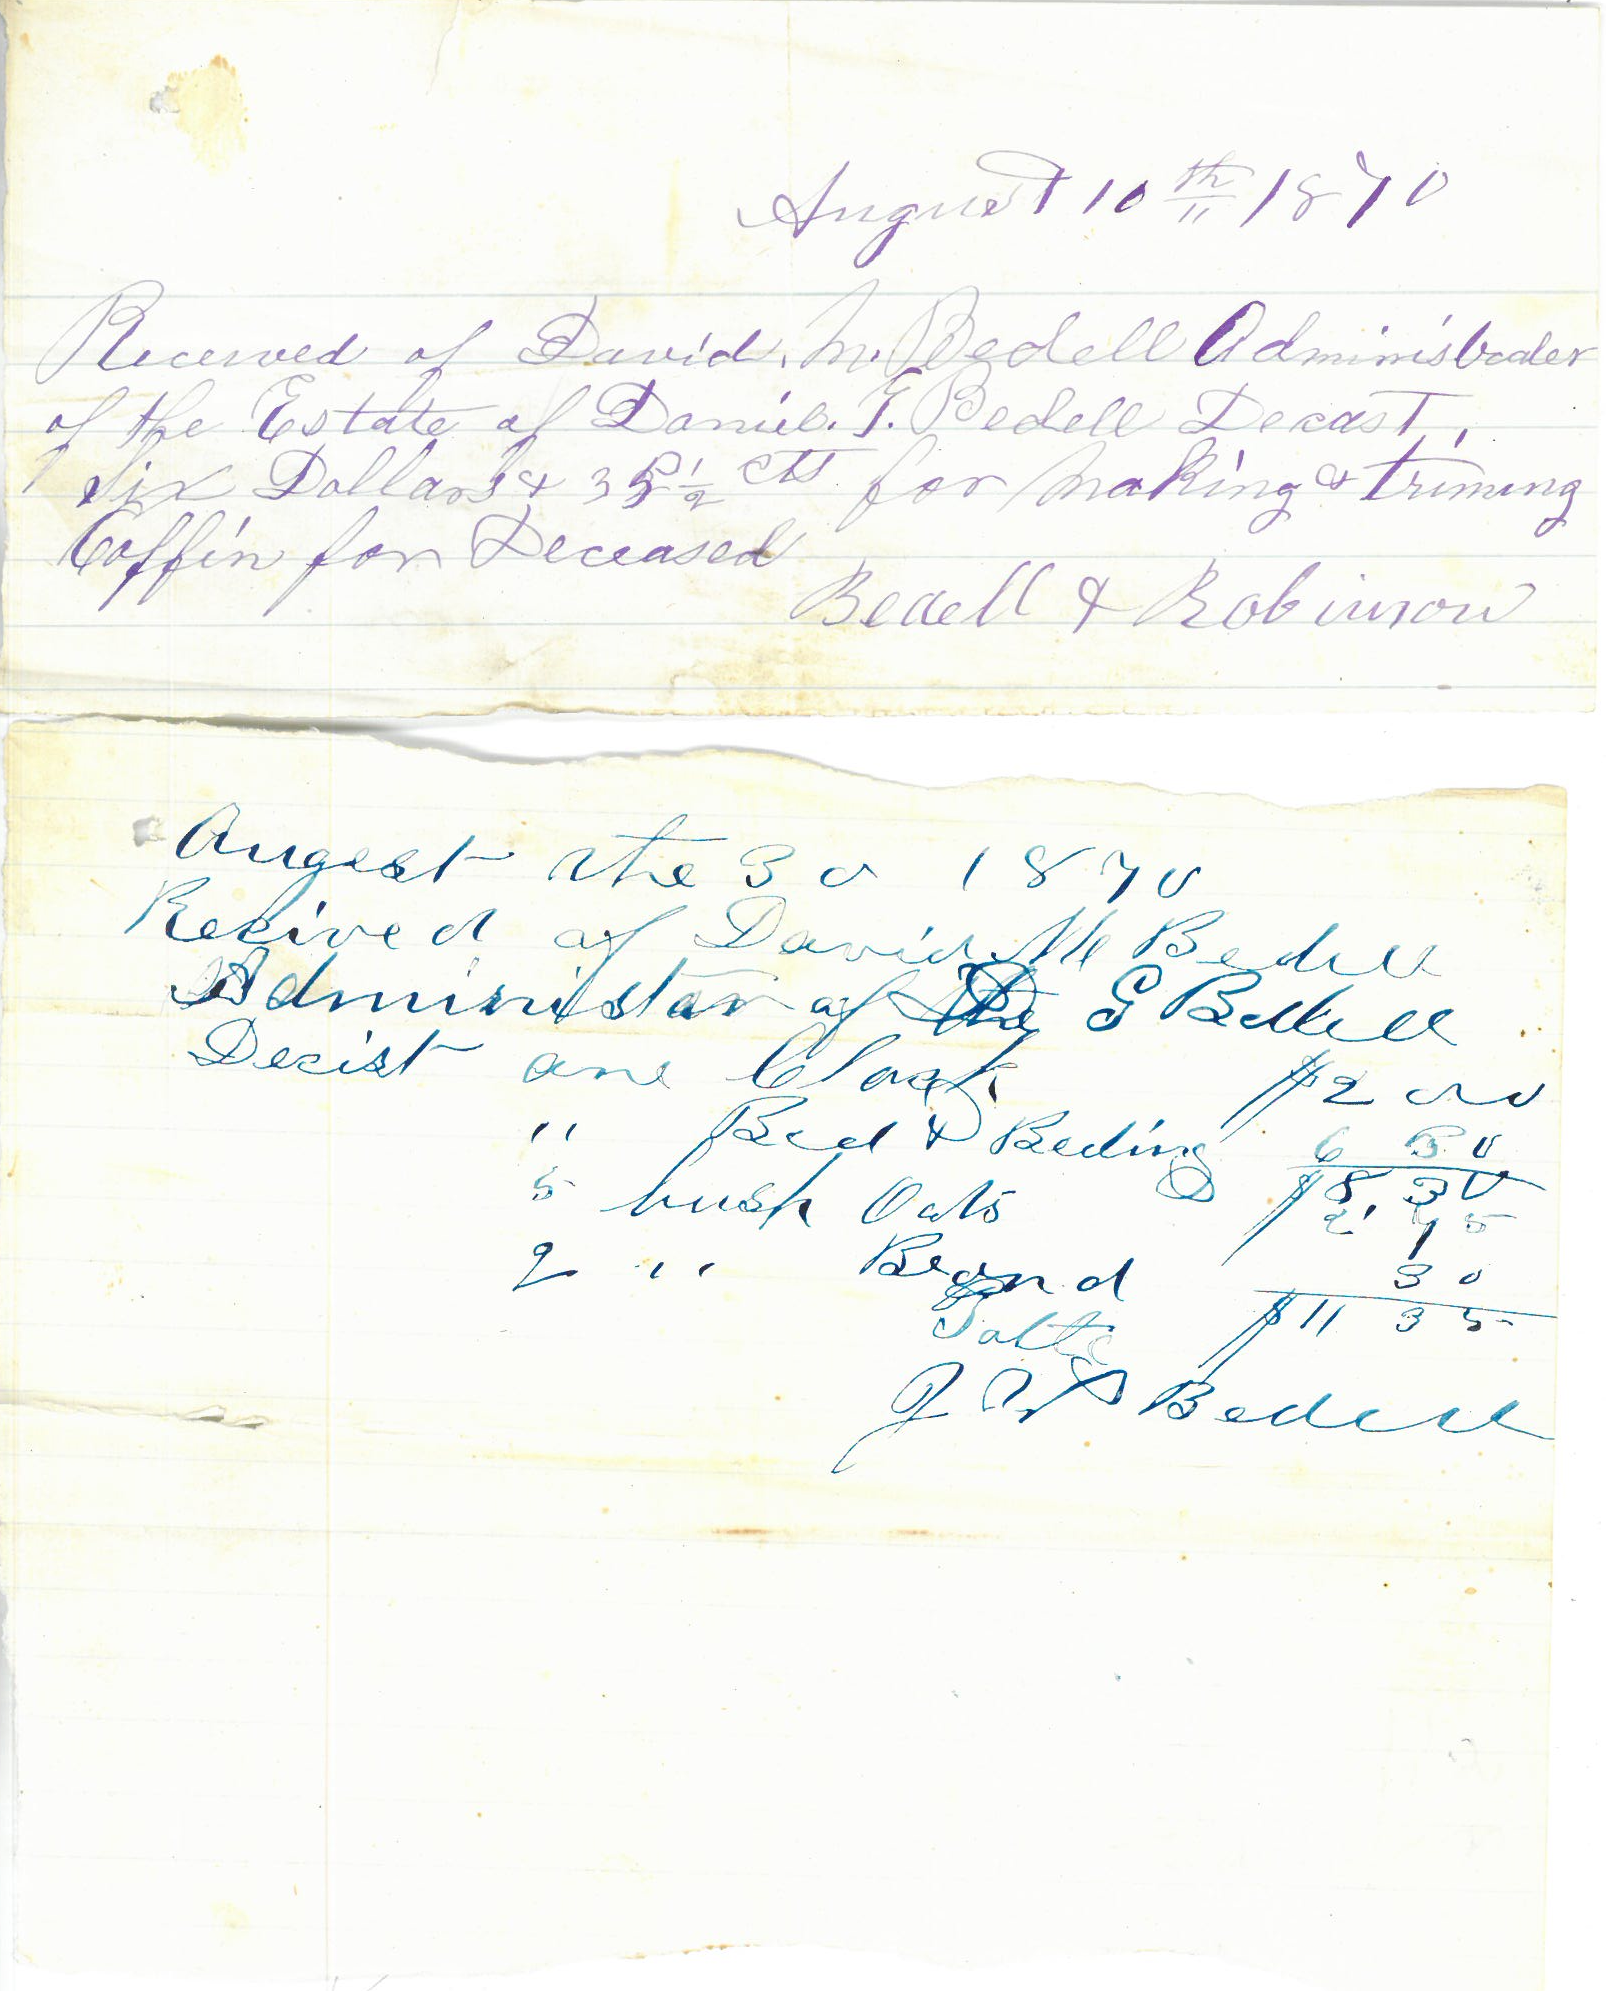 August 10th 1870
Received of David. M. Bedell Administrader
of the Estate of Daniel. G. Bedell Decast,
Six Dollars & 35 1/2 cts for Making & Triming
Coffin for Deceased
Bedell & Robinson
Augest the 30 1870
Recived of David M Bedell
Administar of G Bedell
Decist one Clock $2 00
" Bed & Beding 6 30
$8.30
5 bush Oats 2.75
2 " 30
$11 35
Bedell